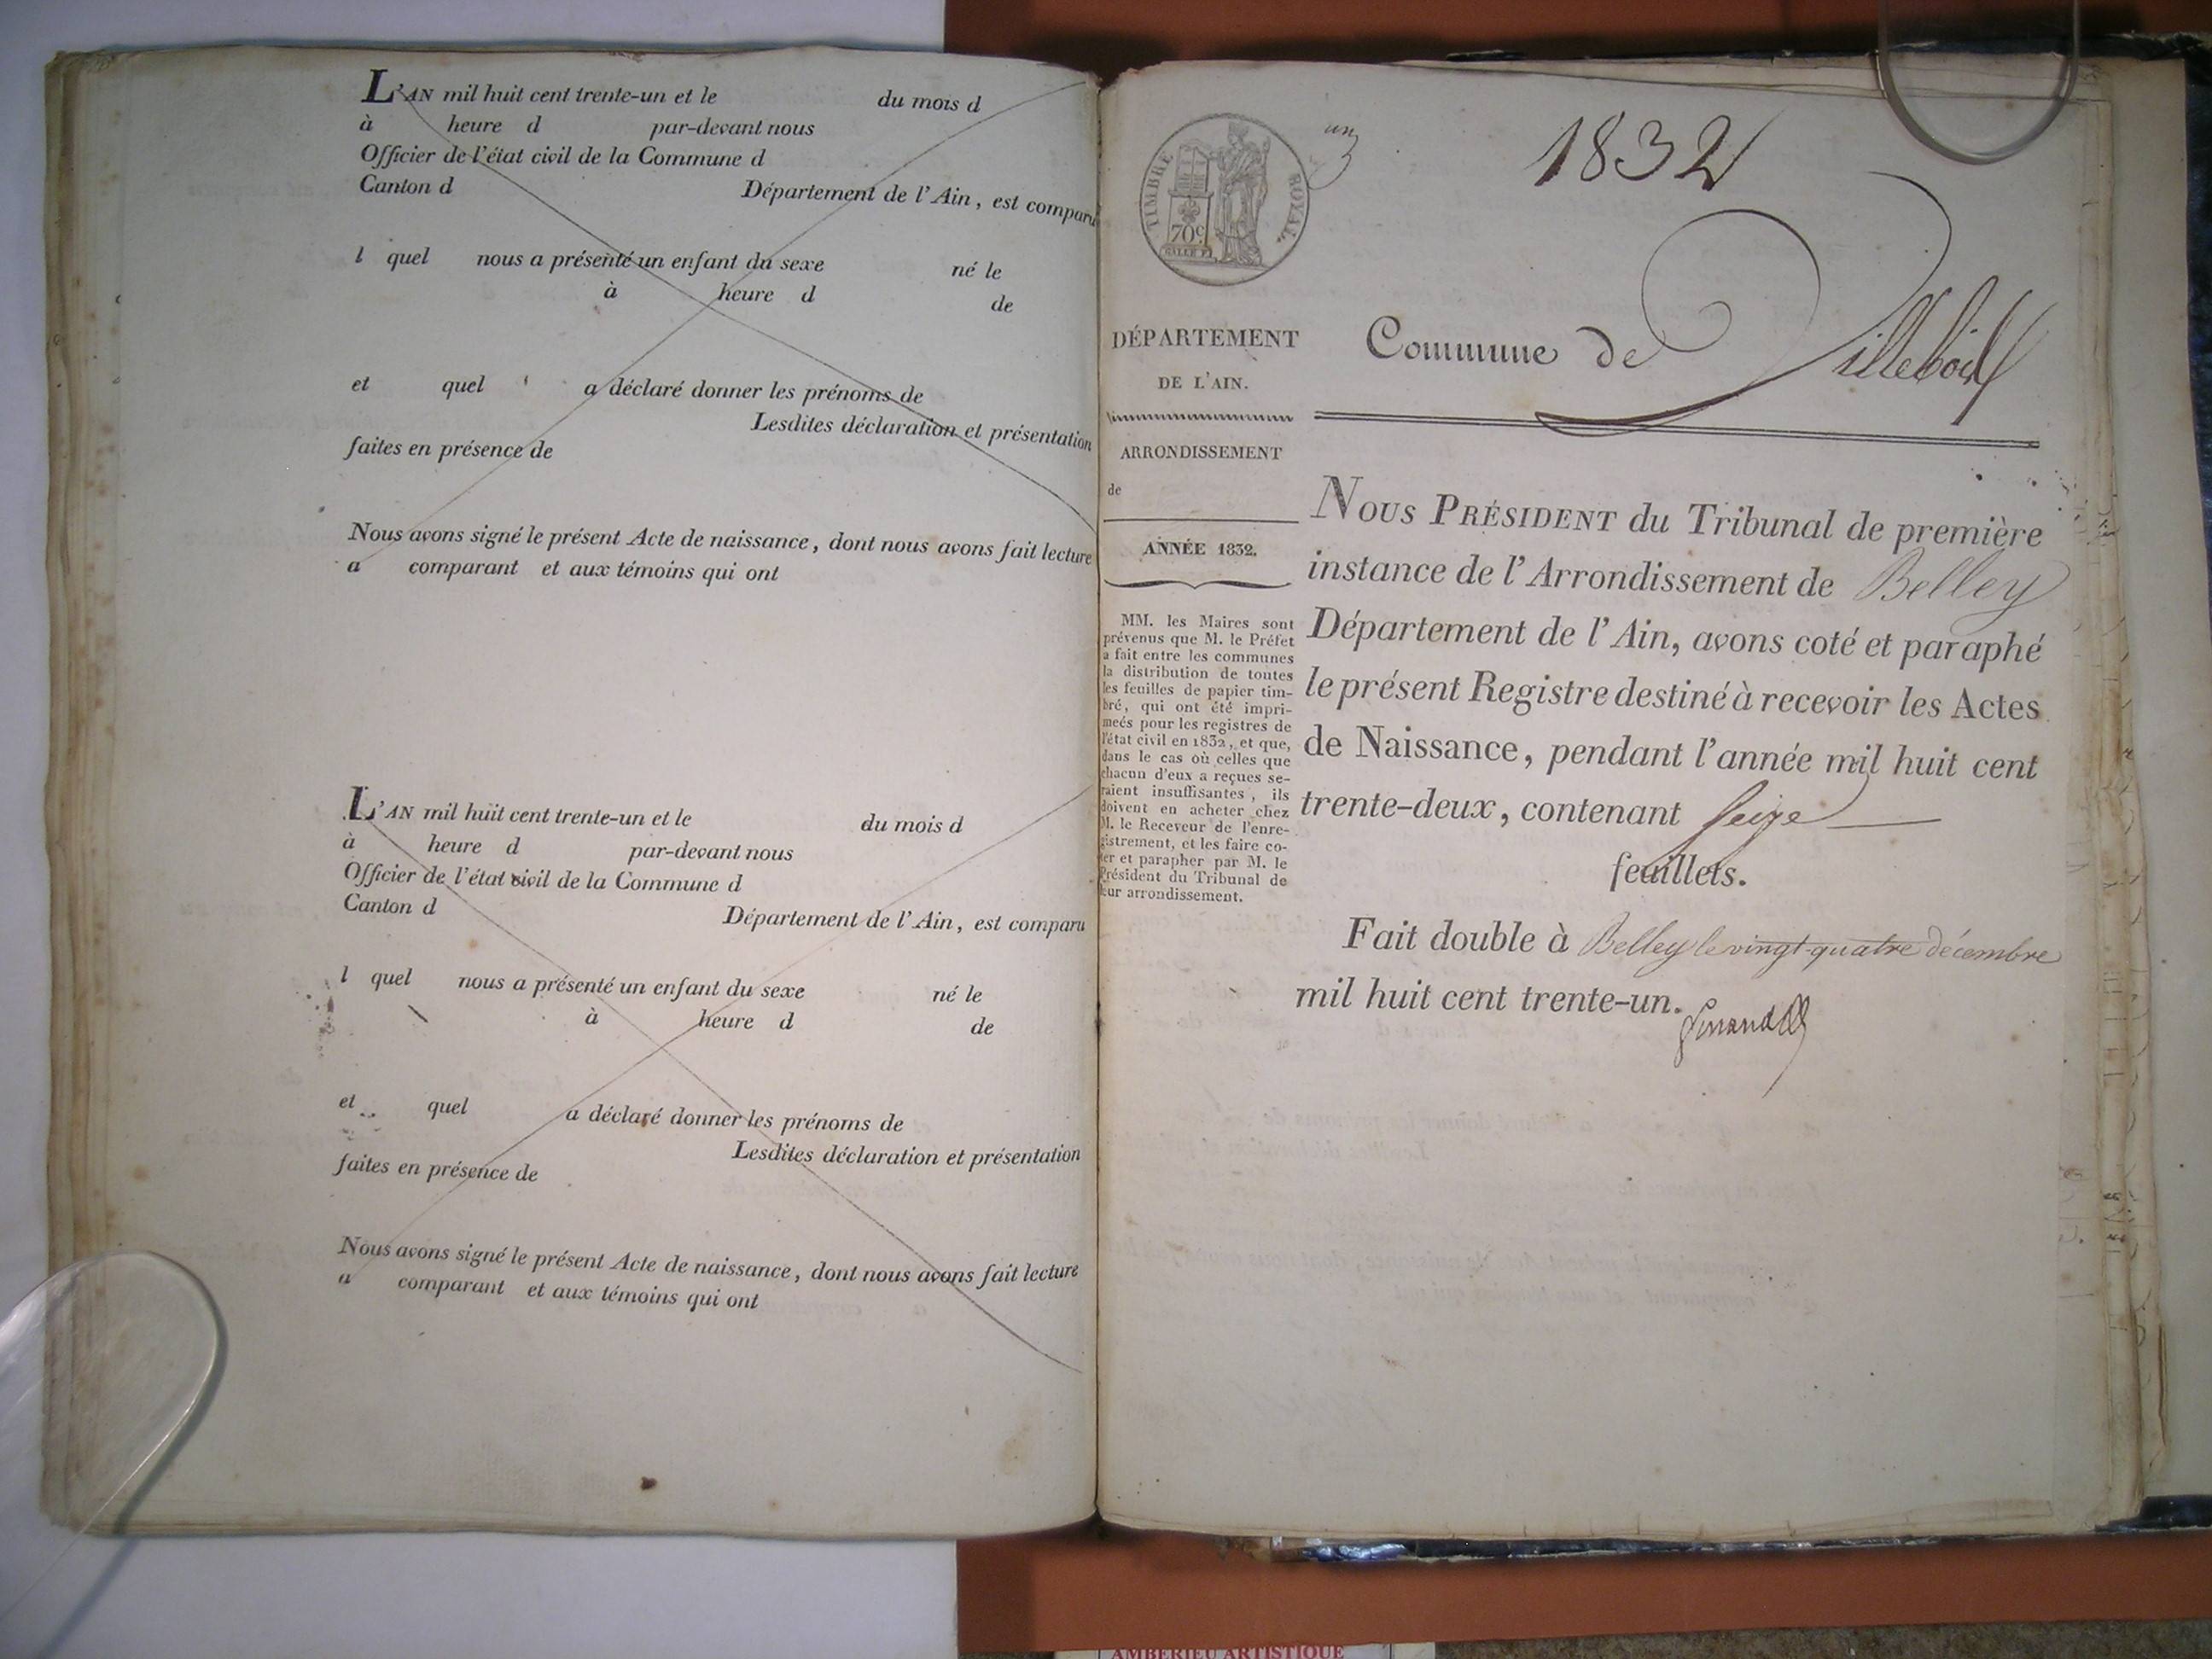 L'AN mil huit cent trente-un et le du mois d
à heure d par-devant nous
Officier de l'état civil de la Commune d
Canton d Département de l'Ain, est comparu
l quel nous a présenté un enfant du sexe né le
à heure d de
et quel a déclaré donner les prénoms de
Lesdites déclaration et présentation
faites en présence de
Nous avons signé le présent Acte de naissance, dont nous avons fait lecture
a comparant et aux témoins qui ont
L'AN mil huit cent trente-un et le du mois d
à heure d par-devant nous
Officier de l'état civil de la Commune d
Canton d Département de l'Ain, est comparu
l quel nous a présenté un enfant du sexe né le
à heure d de
et quel a déclaré donner les prénoms de
Lesdites déclaration et présentation
faites en présence de
Nous avons signé le présent Acte de naissance, dont nous avons fait lecture
a comparant et aux témoins qui ont
TIMBRE ROYAL.
70c
un
1832
Commune de Villebois
DÉPARTEMENT
DE L'AIN.
ARRONDISSEMENT
de
ANNÉE 1832.
MM. les Maires sont
prévenus que M. le Préfet
a fait entre les communes
la distribution de toutes
les feuilles de papier tim-
bré, qui ont été impri-
meés pour les registres de
l'état civil en 1832, et que,
dans le cas où celles que
chacun d'eux a reçues se-
raient insuffisantes, ils
doivent en acheter chez
M. le Receveur de l'enre-
gistrement, et les faire co-
ter et parapher par M. le
Président du Tribunal de
leur arrondissement.
NOUS PRÉSIDENT du Tribunal de première
instance de l'Arrondissement de Belley
Département de l'Ain, avons coté et paraphé
le présent Registre destiné à recevoir les Actes
de Naissance, pendant l'année mil huit cent
trente-deux, contenant Seize
feuillets.
Fait double à Belley le vingt-quatre décembre
mil huit cent trente-un.
AMBERIEU ARTISTIQUE